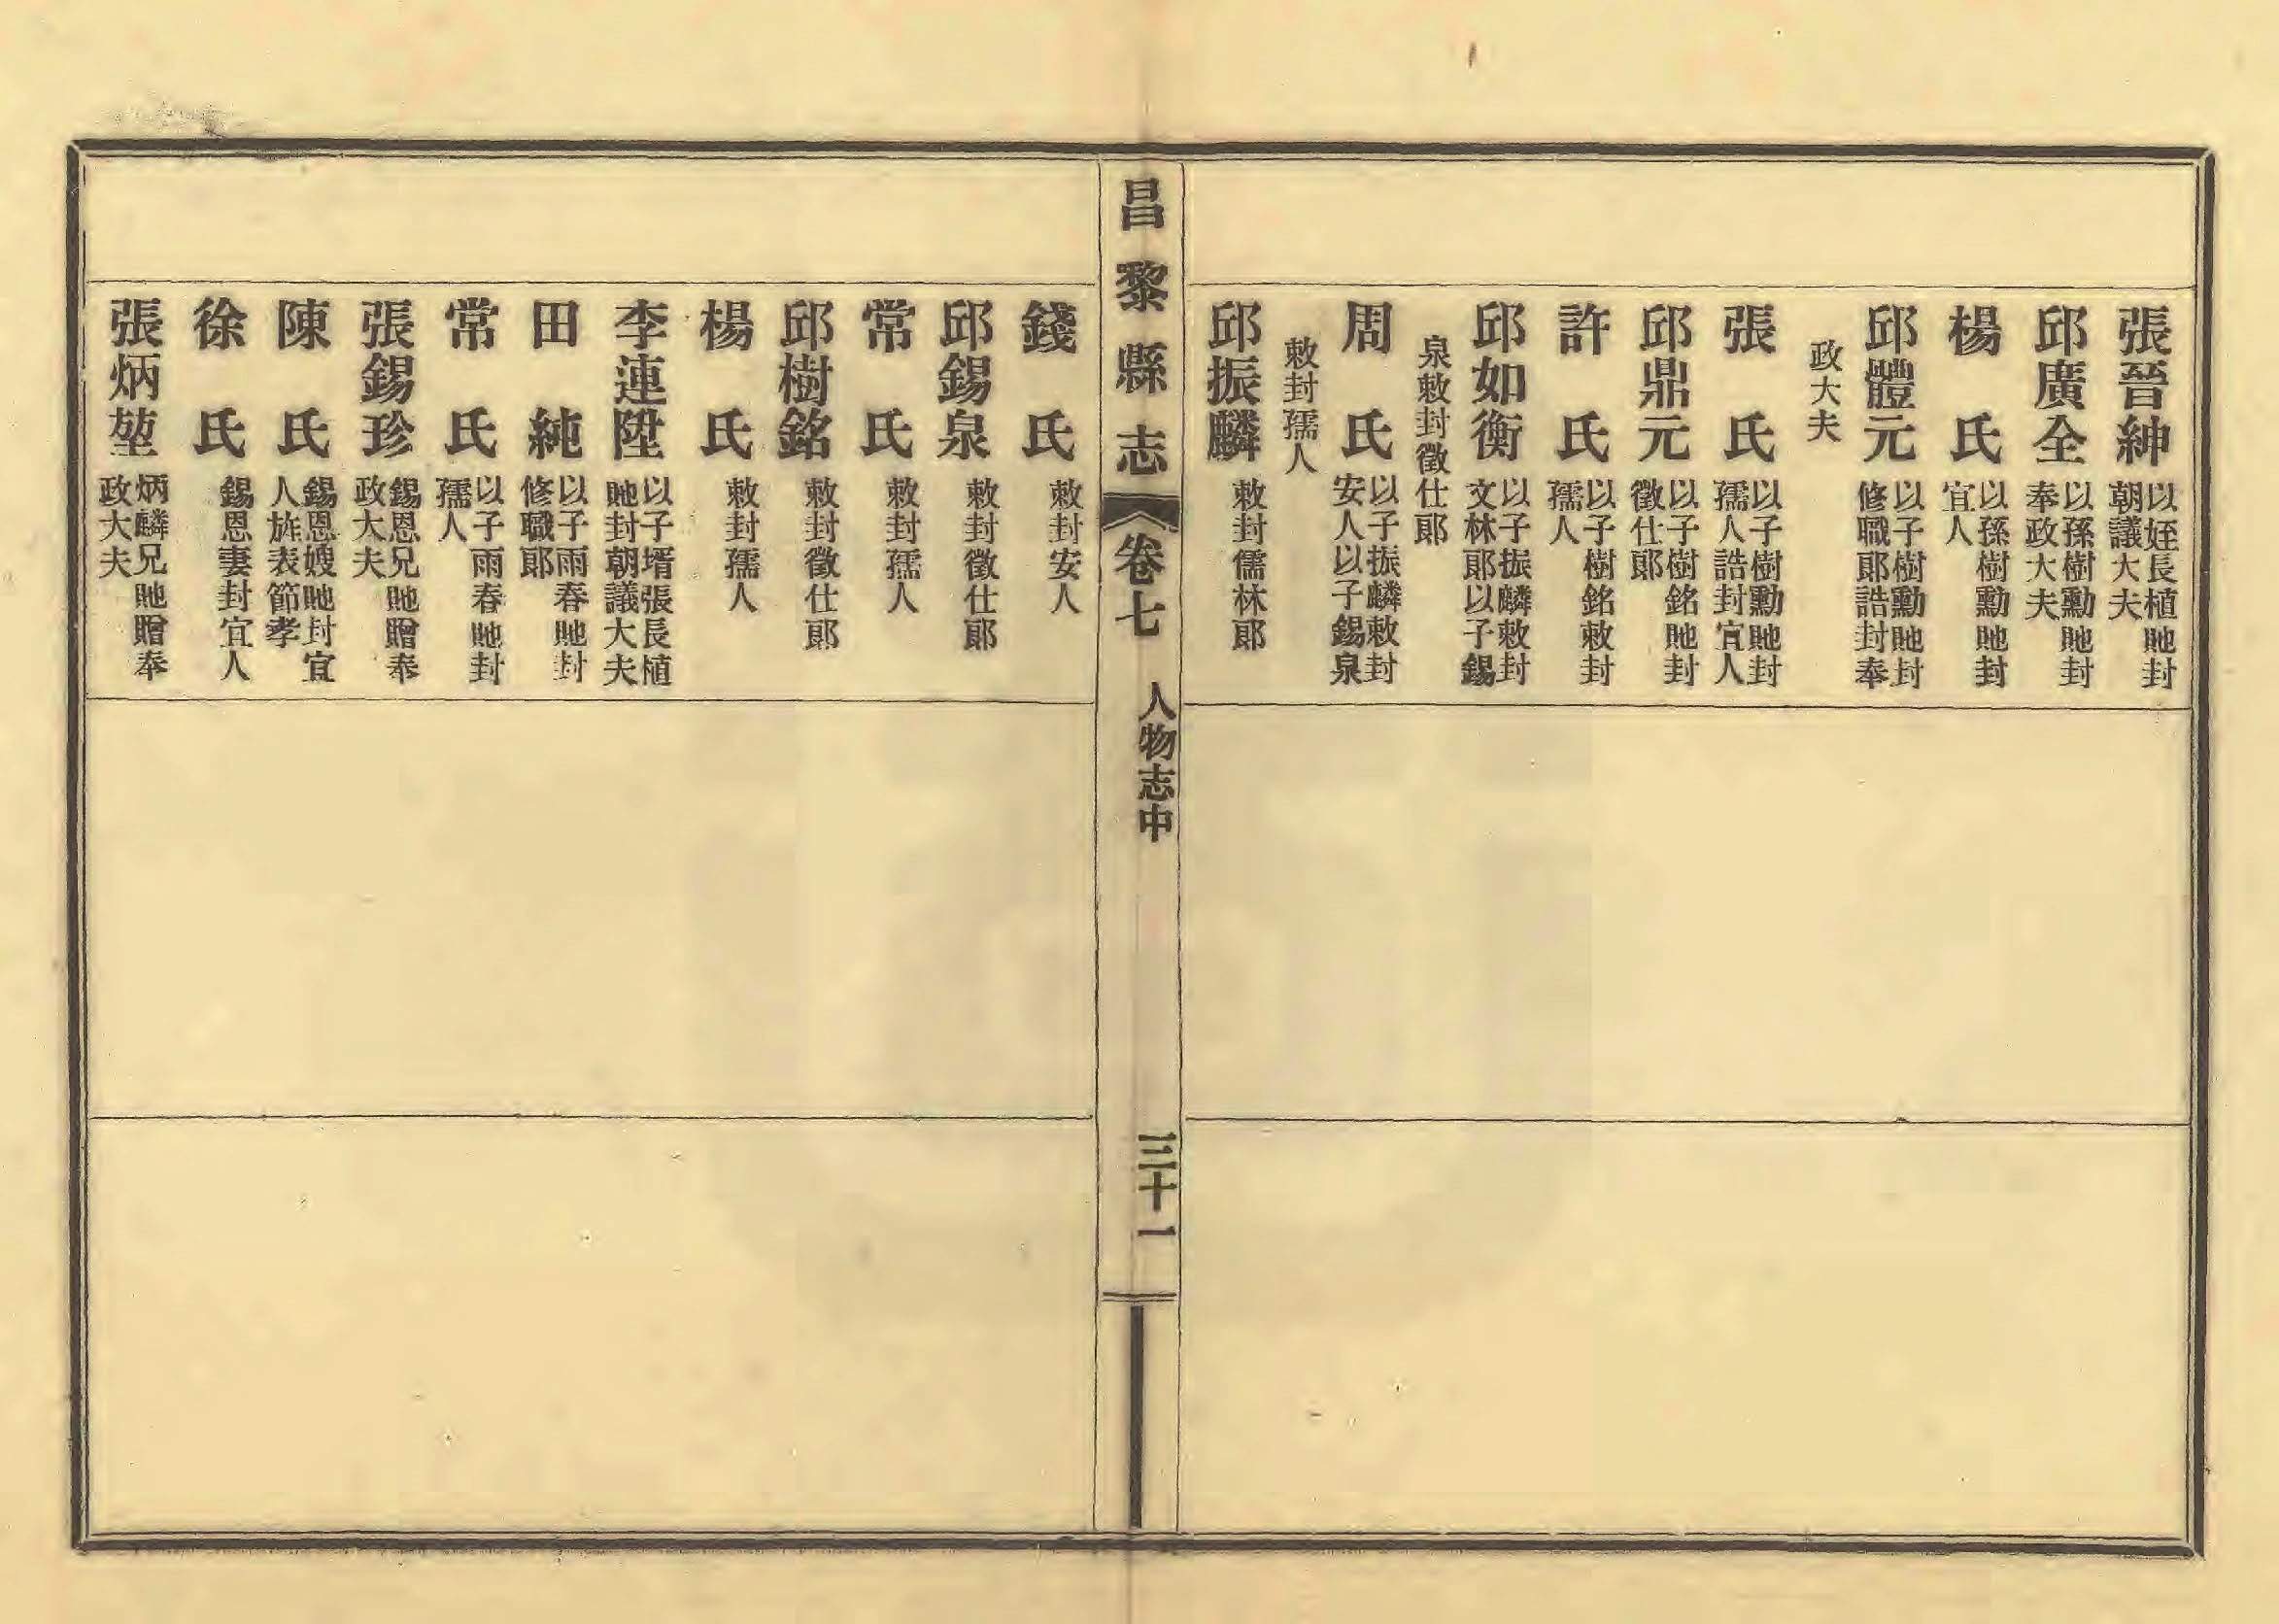 張晉紳 以姪長植貤封朝議大夫
邱廣全 以孫樹勳貤封奉政大夫
楊氏 以孫樹勳貤封宜人
邱體元 以子樹勳貤封修職郞誥封奉
政大夫
張氏 以子樹勳貤封孺人誥封宜人
邱鼎元 以子樹銘貤封徵仕郞
許氏 以子樹銘敕封孺人
邱如衡 以子振麟敕封文林郞以子錫
泉敕封徵仕郞
周氏 以子振麟敕封安人以子錫泉
敕封孺人
邱振麟 敕封儒林郞
昌黎縣志 卷七 人物志中 三十一
錢氏 敕封安人
邱錫泉 敕封徵仕郞
常氏 敕封孺人
邱樹銘 敕封徵仕郞
楊氏 敕封孺人
李連陞 以子壻張長植貤封朝議大夫
田純 以子雨春貤封修職郞
常氏 以子雨春貤封孺人
張錫珍 錫恩兄貤贈奉政大夫
陳氏 錫恩嫂貤封宜人旌表節孝
徐氏 錫恩妻封宜人
張炳堃 炳麟兄貤贈奉政大夫